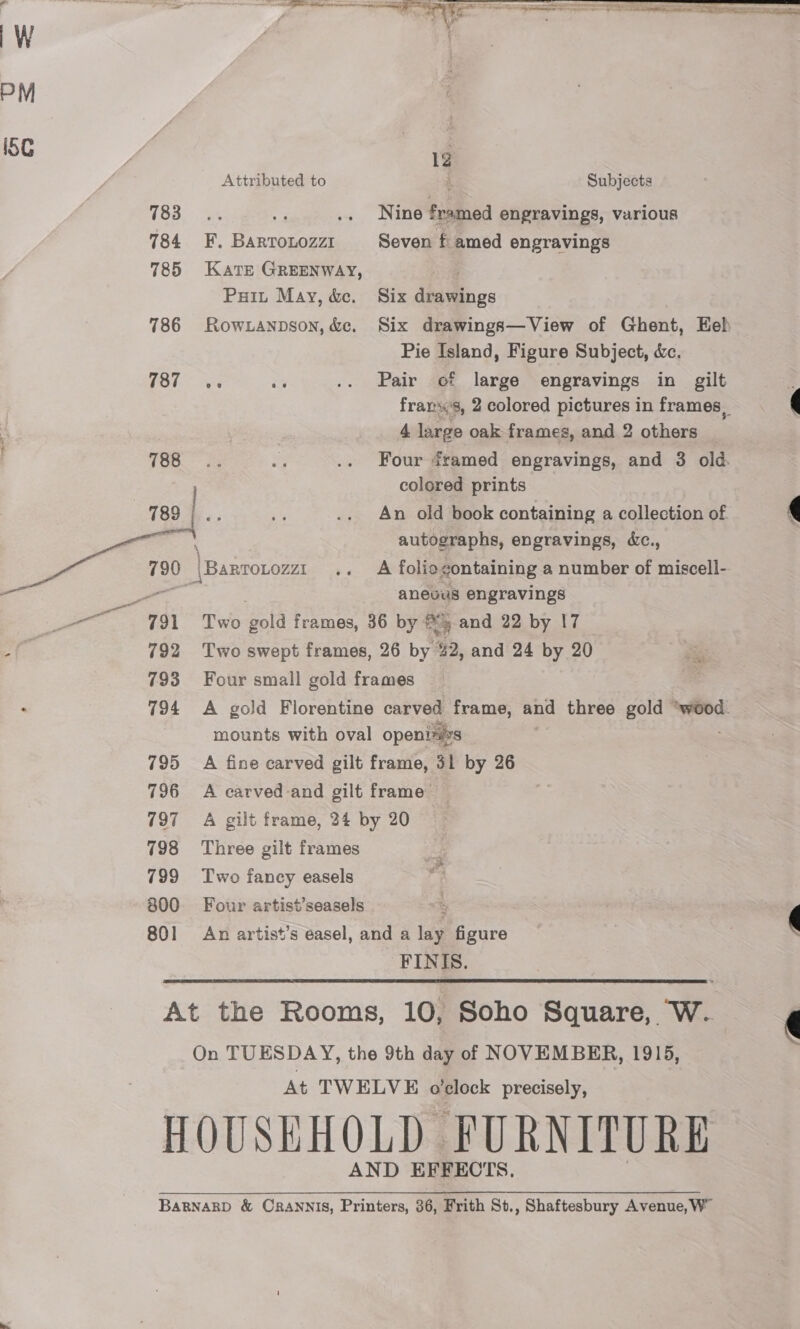 W
PM
15C
12
Attributed to Subjects
783 .. .. .. Nine framed engravings, various
784 F. BARTOLOZZI Seven f amed engravings
785 KATE GREENWAY,
PHIL MAY, &c. Six drawings
786 ROWLANDSON, &c. Six drawings—View of Ghent, Eel
Pie Island, Figure Subject, &c.
787 .. .. .. Pair of large engravings in gilt
frames, 2 colored pictures in frames,
4 large oak frames, and 2 others
788 .. .. .. Four framed engravings, and 3 old
colored prints
789 .. .. .. An old book containing a collection of
autographs, engravings, &c.,
790 BARTOLOZZI .. A folio containing a number of miscell-
aneous engravings
791 Two gold frames, 36 by and 22 by 17
792 Two swept frames, 26 by 22, and 24 by 20
793 Four small gold frames
794 A gold Florentine carved frame, and three gold wood
mounts with oval openings
795 A fine carved gilt frame, 31 by 26
796 A carved and gilt frame
797 A gilt frame, 24 by 20
798 Three gilt frames
799 Two fancy easels
800 Four artist'seasels
801 An artist's easel, and a lay figure
FINIS.
At the Rooms, 10, Soho Square, W.
On TUESDAY, the 9th day of NOVEMBER, 1915,
At TWELVE o'clock precisely,
HOUSEHOLD FURNITURE
AND EFFECTS.
BARNARD & CRANNIS, Printers, 36, Frith St., Shaftesbury Avenue, W